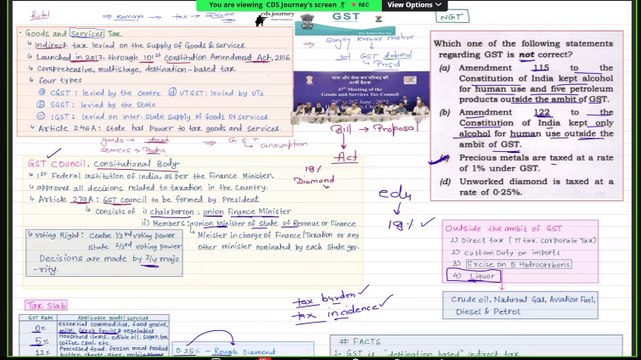 You are viewing CDS Journey's screen
REC
View Options
journey
GST
NGT
• Goods and Services Tax
• Indirect tax levied on the Supply of Goods & services
• Launched in 2017 through 101st Constitution Amendment Act, 2016
• Comprehensive, multistage, destination-based tax
• four types
@ CGST: levied by the Centre @ UTGST: levied by UTs
SGST: levied by the State
IGST: levied on inter-State supply of Goods or services
• Article 246A: State has Power to tax goods and services
1st
47th Meeting of the
Goods and Services Tax Council
Bill → Proposal
Act
18%
Diamond
edu
18% ✓
tax burden ✓
tax incidence ✓
GST COUNCIL, Constitutional Body
• 1st Federal institution of India, as per the Finance Minister.
• approves all decisions related to taxation in the Country.
• Article 279A: GST Council to be formed by President
• consists of i) chairperson: union Finance Minister
ii) Members: union Minister of state of Revenue or Finance
Minister in charge of Finance/Taxation or any
other minister nominated by each State gov.
• Voting Right: Centre 1/3rd voting power
State 2/3rd voting power
Decisions are made by 3/4 majo
-rity.
Tax Slab
GST Rate
0%
essential commodities, food grains,
milk, fresh fruits & vegetables
5%
Household items, edible oil, sugar, tea
coffee, coal etc.
12%
Processed food, Frozen meat Product
0.25% - Rough Diamond
Which one of the following statements
regarding GST is not correct?
(a) Amendment 115 to the
Constitution of India kept alcohol
for human use and five petroleum
products outside the ambit of GST.
(b) Amendment 122 to the
Constitution of India kept only
alcohol for human use outside the
ambit of GST.
Precious metals are taxed at a rate
of 1% under GST.
(d) Unworked diamond is taxed at a
rate of 0·25%.
Outside the ambit of GST
1) Direct tax (IT tax, corporate Tax)
2) custom Duty on imports
3) Excise on 5 Hydrocarbons
4) Liquor
Crude oil, Natural Gat, Aviation Fuel,
Diesel & Petrol
## FACTS
1- GST is "destination based" indirect tax